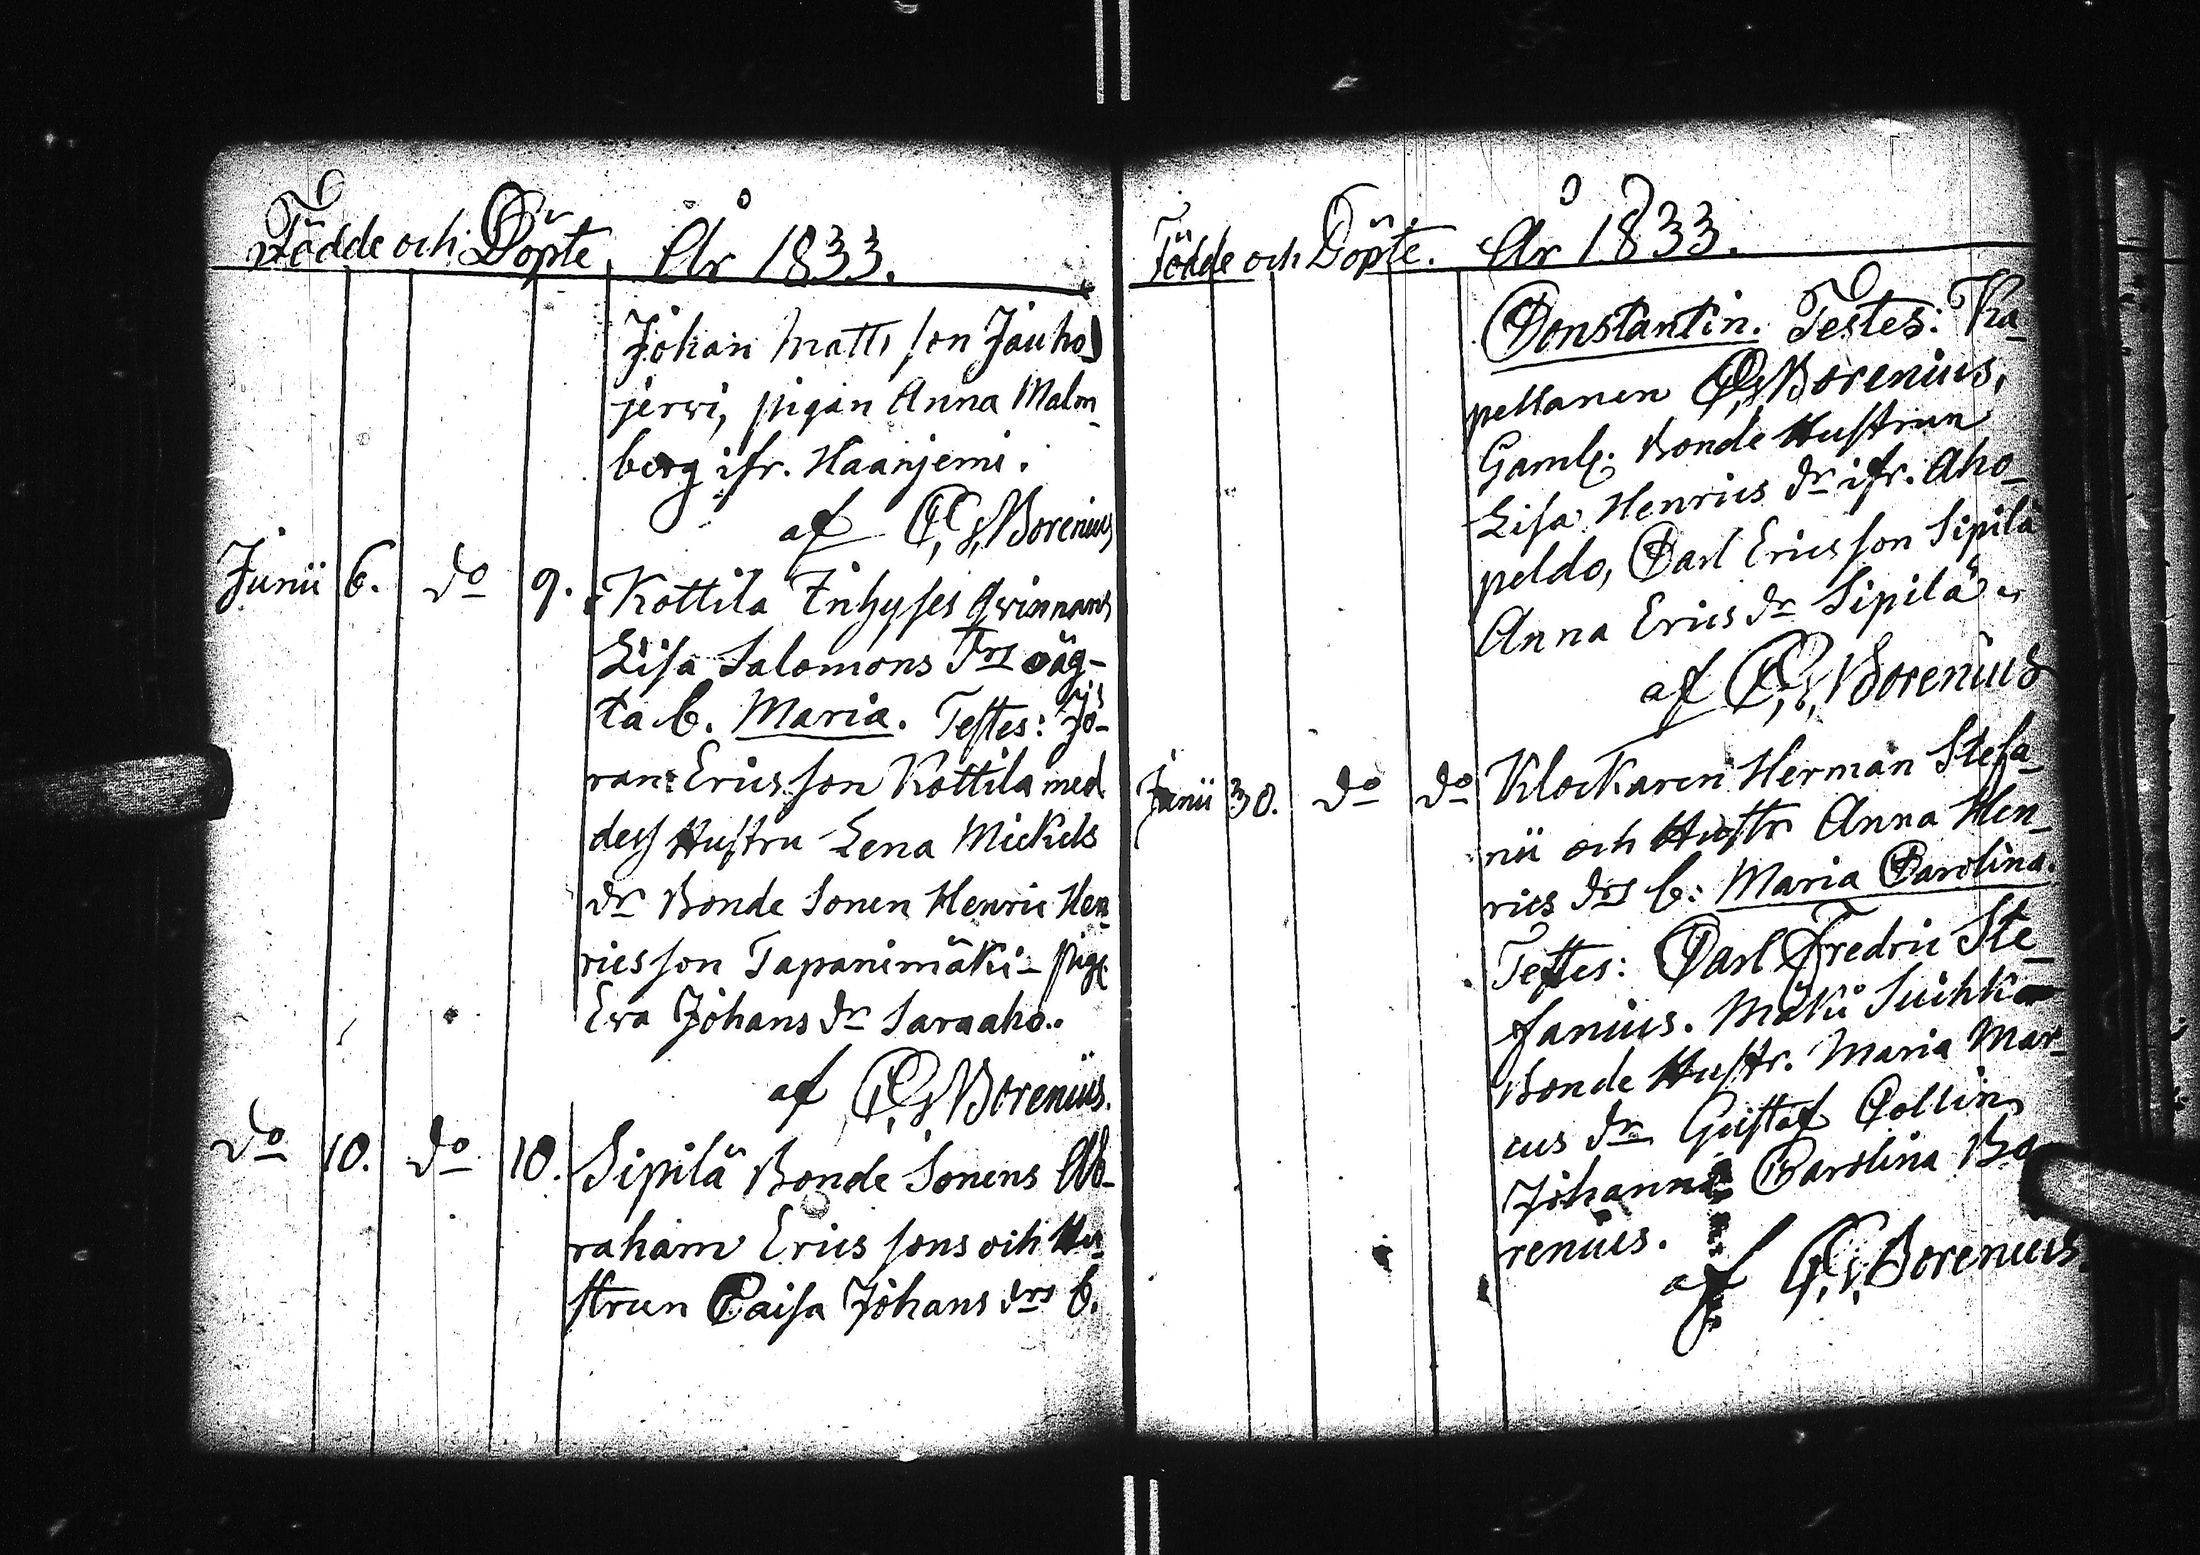 Födde och Döpte, År 1833.
Johan Matts son Jauho
jerwi, pigan Anna Malm
berg ifr. Haanjemi.
af C. G. Borenius
Junii 6. do 9. Kottila Inhyses Qwinnans
Lisa Salomons drs oäg-
ta b. Maria. Testes: Jö-
ran Ericsson Kottila med
dess Hustru Lena Mickels
dr Bonde Sonen Henric Hen
ricsson Tapanimäki - pig.
Ewa Johans dr Saraaho.
af C. G. Borenius.
do 10. do 10. Sipilä Bonde Sonens Ab-
raham Erics sons och Hu
strun Caisa Johans drs b.
Födde och Döpte. År 1833.
Constantin. Testes: Ka
pellanen C. G. Borenius,
Gaml. Bonde Hustrun
Lisa Henrics dr ifr. Aho
peldo, Carl Ericsson Sipilä
Anna Erics dr Sipilä
af C. G. Borenius
Junii 30. do do Klockaren Herman Stefa
nii och Hustr Anna Hen
rics drs b: Maria Carolina.
Testes: Carl Fredric Ste
fanius. Mäki Suihko
Bonde Hustr. Maria Mar
cus dr Gustaf Collin
Johanna Carolina Bo
renius.
af C. G. Borenius.